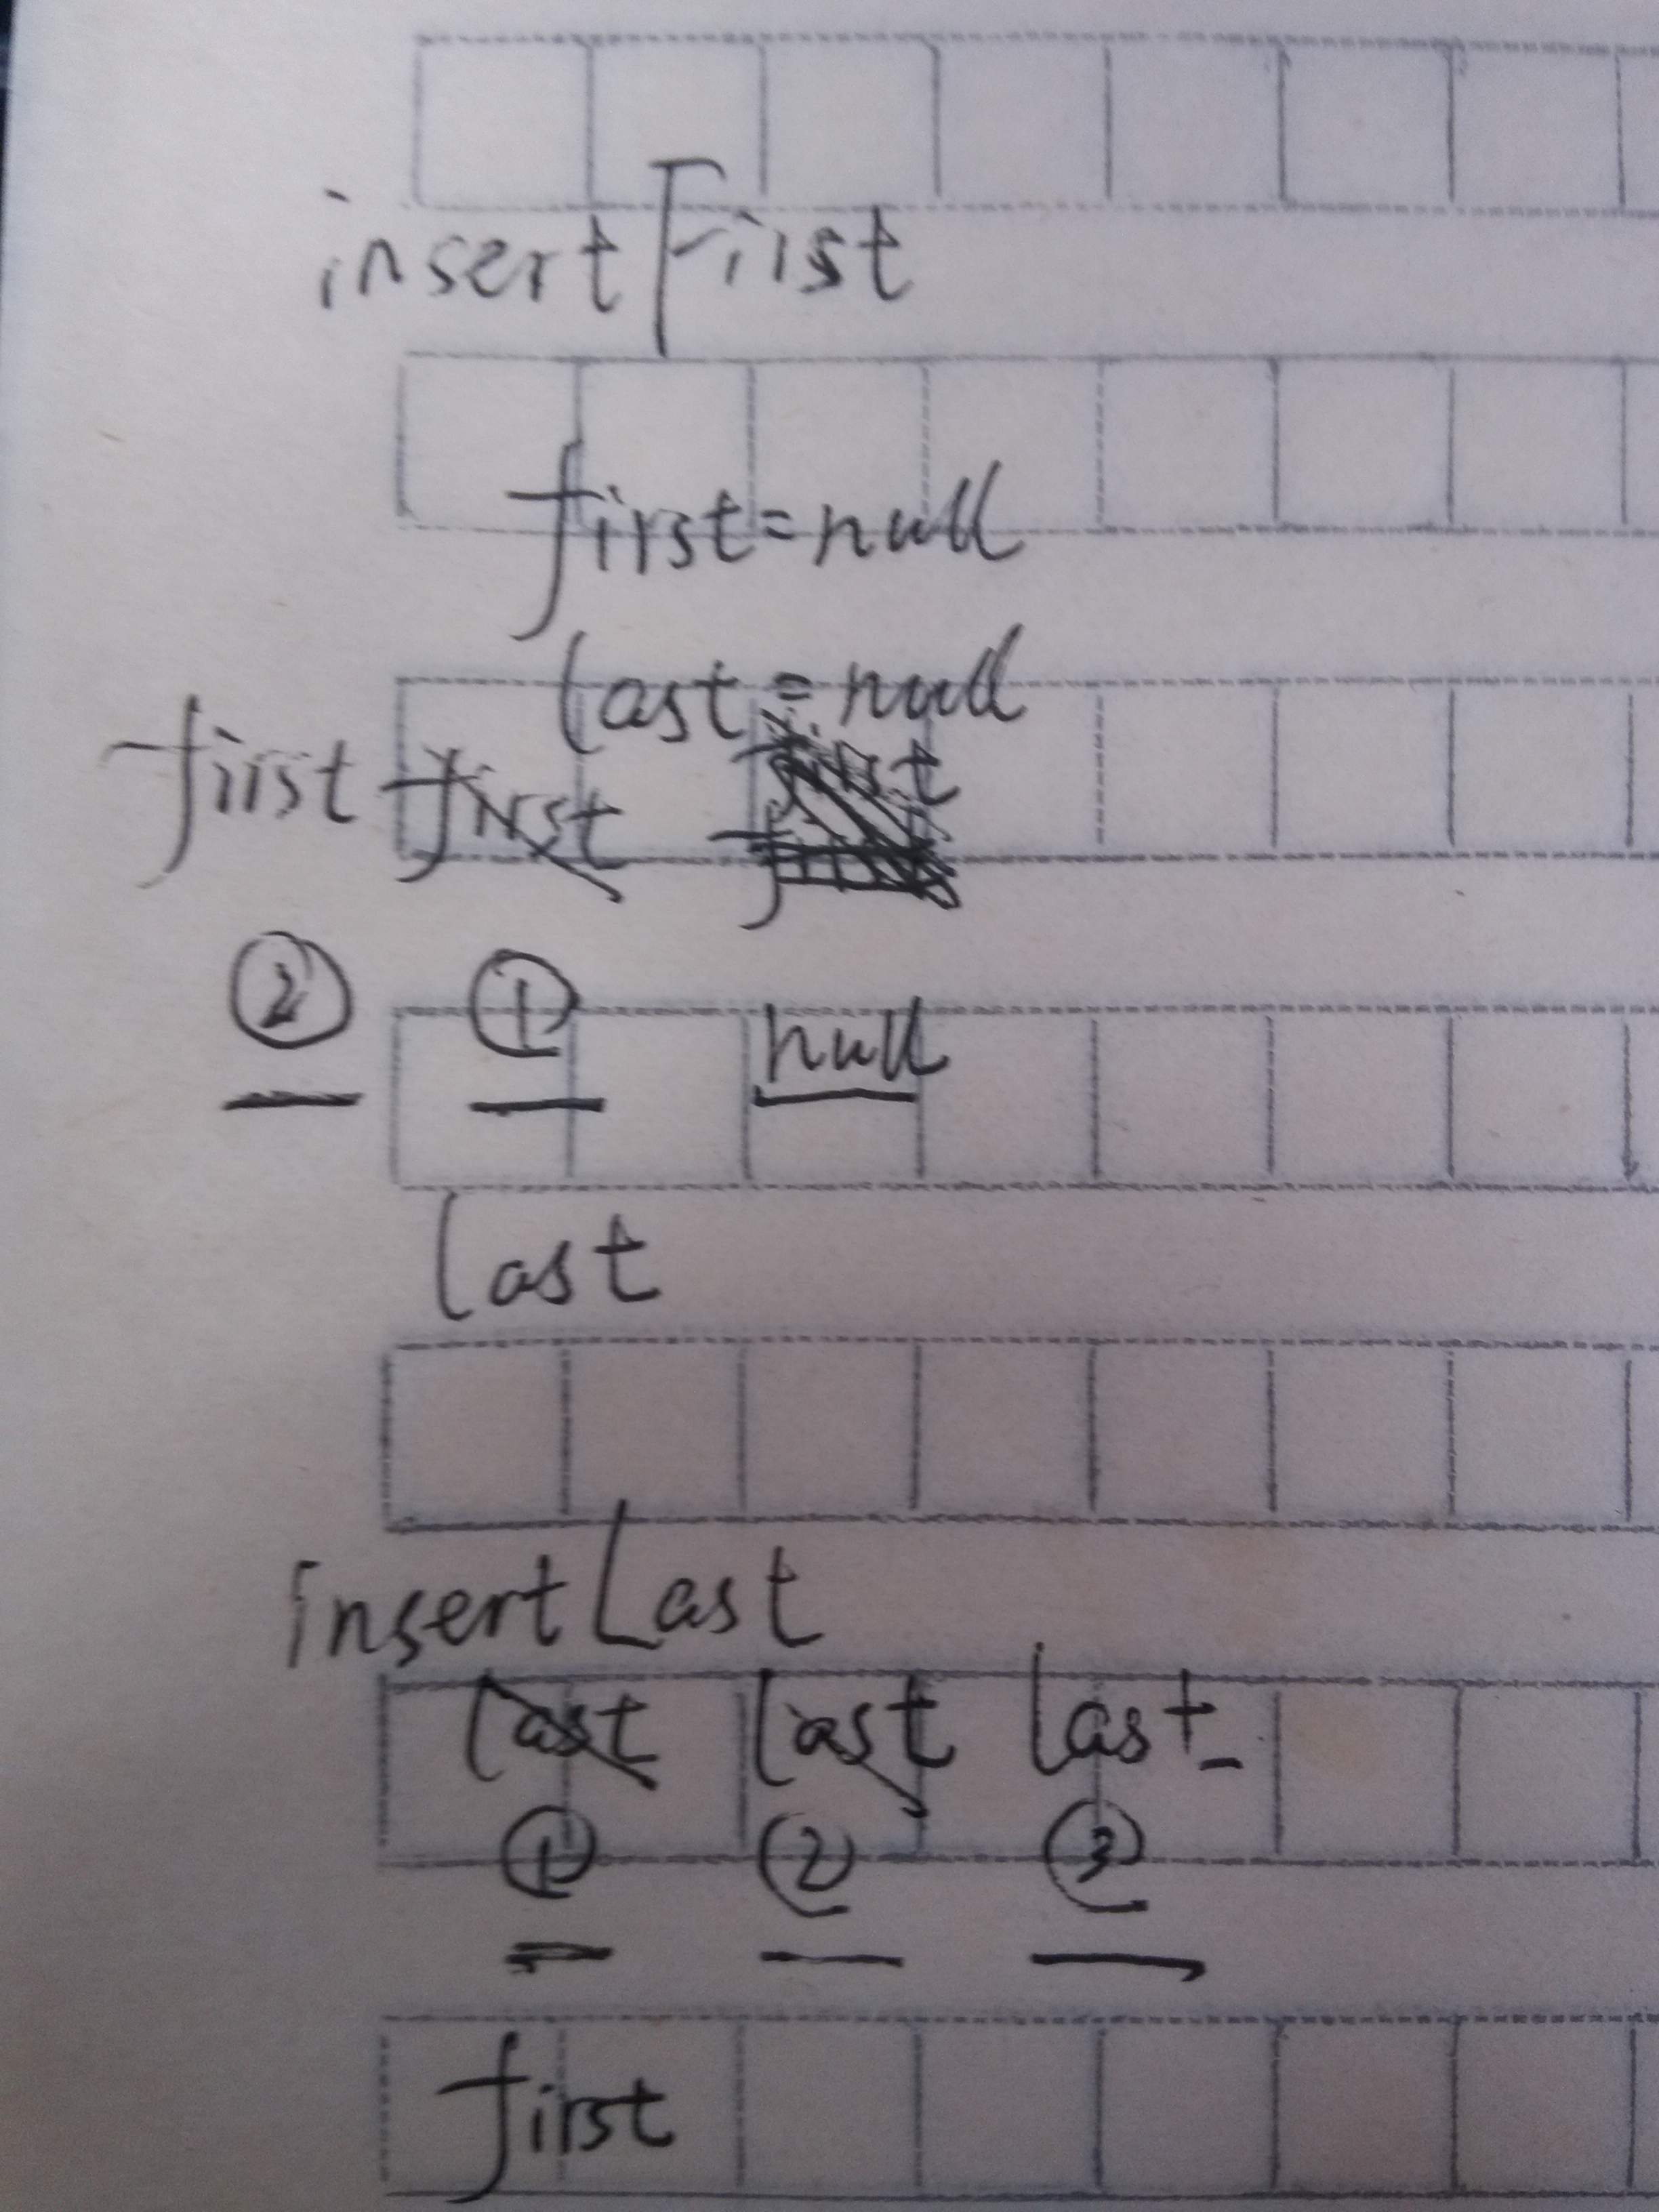 insertFirst
first=null
last=null
first first first
② ① null
last
insertLast
last last last
① ② ③
first